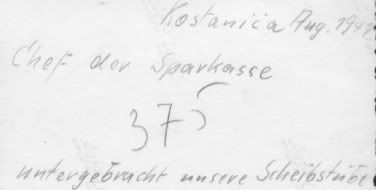 Kostanica Aug. 1942
Chef der Sparkasse
375
untergebracht unsere Scheibstube